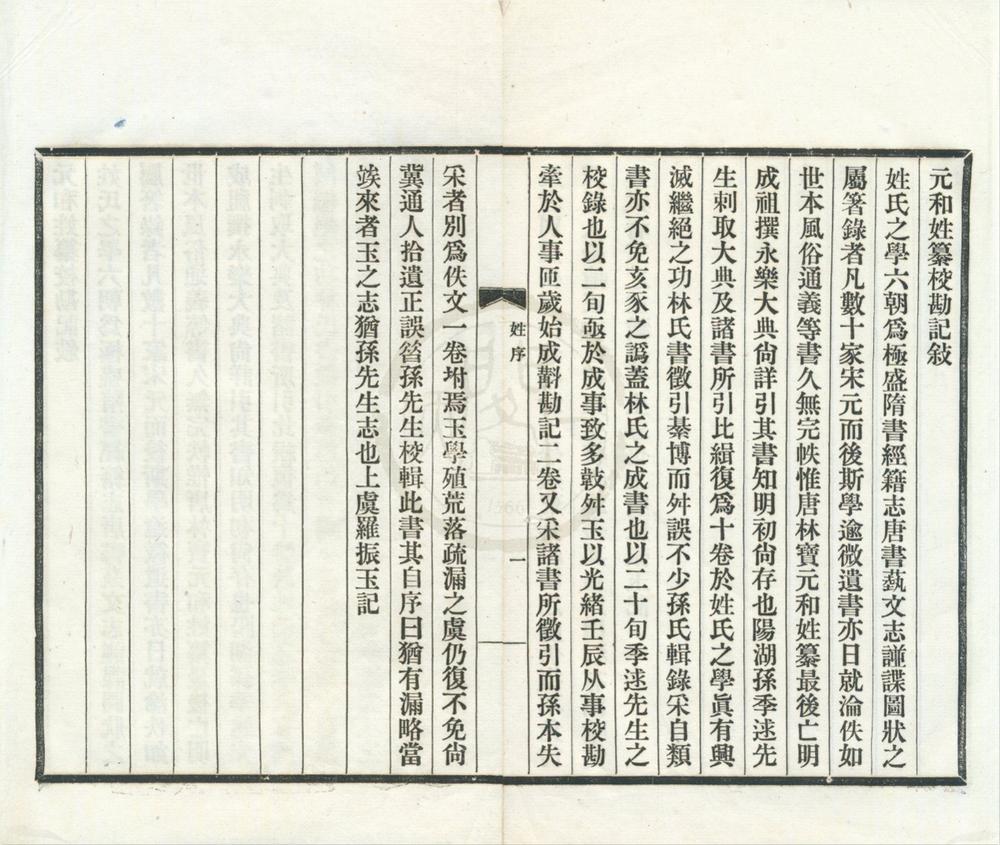 元和姓纂校勘記敍
姓氏之學六朝爲極盛隋書經籍志唐書藝文志譜諜圖狀之
屬箸錄者凡數十家宋元而後斯學逾微遺書亦日就淪佚如
世本風俗通義等書久無完帙惟唐林寶元和姓纂最後亡明
成祖撰永樂大典尙詳引其書知明初尙存也陽湖孫季逑先
生刺取大典及諸書所引比緝復爲十卷於姓氏之學眞有興
滅繼絕之功林氏書徵引綦博而舛誤不少孫氏輯錄宋自類
書亦不免亥豕之譌蓋林氏之成書也以二十旬季逑先生之
校錄也以二旬亟於成事致多敧舛玉以光緒壬辰从事校勘
牽於人事匝歲始成斠勘記二卷又采諸書所徵引而孫本失
姓序
一
采者別爲佚文一卷坿焉玉學殖荒落疏漏之虞仍復不免尙
冀通人拾遺正誤昝孫先生校輯此書其自序曰猶有漏略當
竢來者玉之志猶孫先生志也上虞羅振玉記
1566